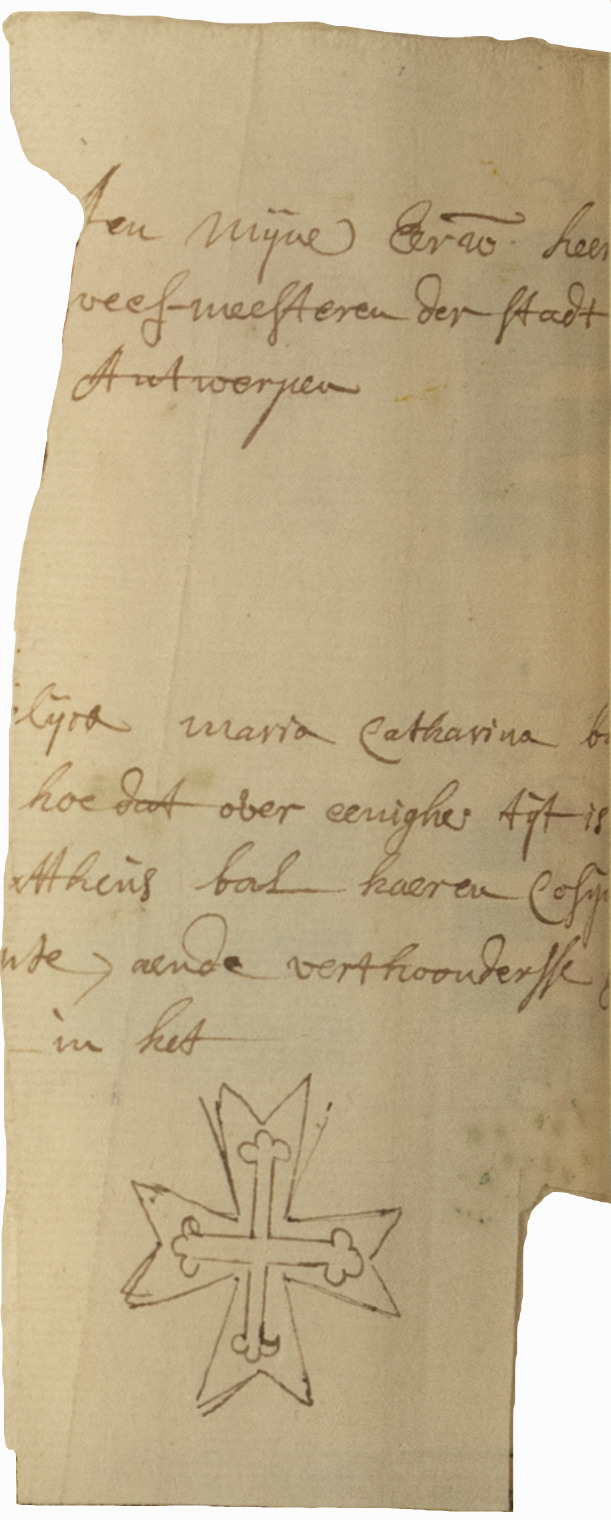 Aen Mijne Eerw. heer
weesmeesteren der stadt
Antwerpen
lijck maria Catharina b
hoe dat over eenighe tijt is
attheus bal haeren Cosij
nte) aende verthoondersse
in het